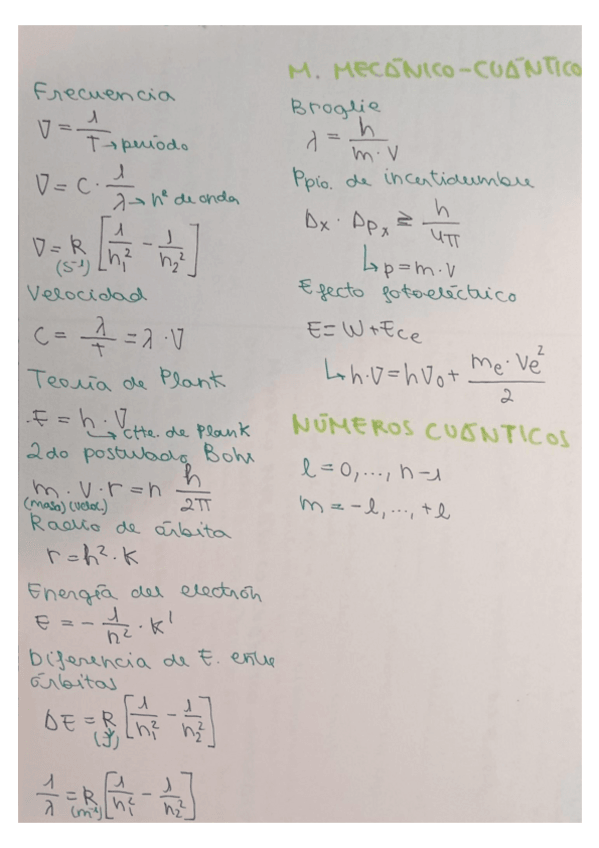 Frecuencia
ν = 1/T → período
ν = c · 1/λ → nº de onda
ν = R (s⁻¹) [1/n₁² − 1/n₂²]
Velocidad
c = λ/T = λ · ν
Teoría de Plank
E = h · ν
→ ctte. de Plank
2do postulado Bohr
m · v · r = n h/2π
(masa) (veloc.)
Radio de órbita
r = n² · K
Energía del electrón
E = − 1/n² · K'
Diferencia de E. entre
órbitas
ΔE = R (J) [1/n₁² − 1/n₂²]
1/λ = R (m⁻¹) [1/n₁² − 1/n₂²]
M. MECÁNICO-CUÁNTICO
Broglie
λ = h/m·v
Ppio. de incertidumbre
Δx · Δpₓ ≥ h/4π
↳ p = m · v
Efecto fotoeléctrico
E = W + Ece
↳ h · ν = hν₀ + me · ve²/2
NÚMEROS CUÁNTICOS
l = 0, ..., n−1
m = −l, ..., +l